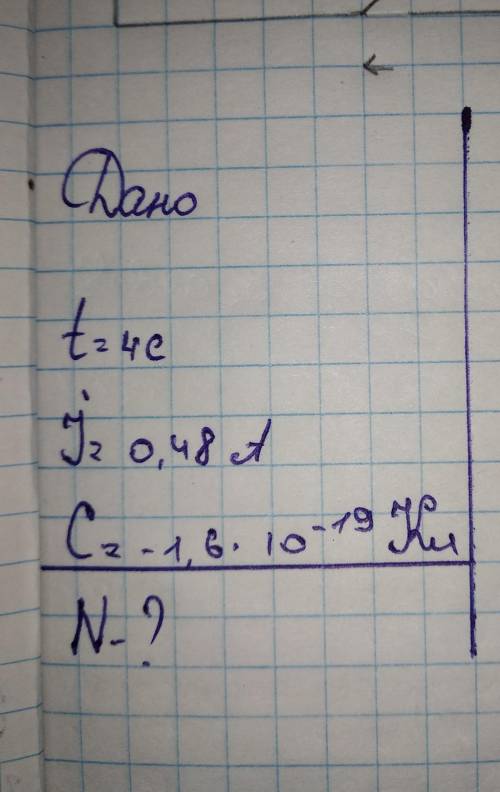 Дано
t = 4c
J = 0,48 A
C = -1,6 · 10⁻¹⁹ Кл
N - ?